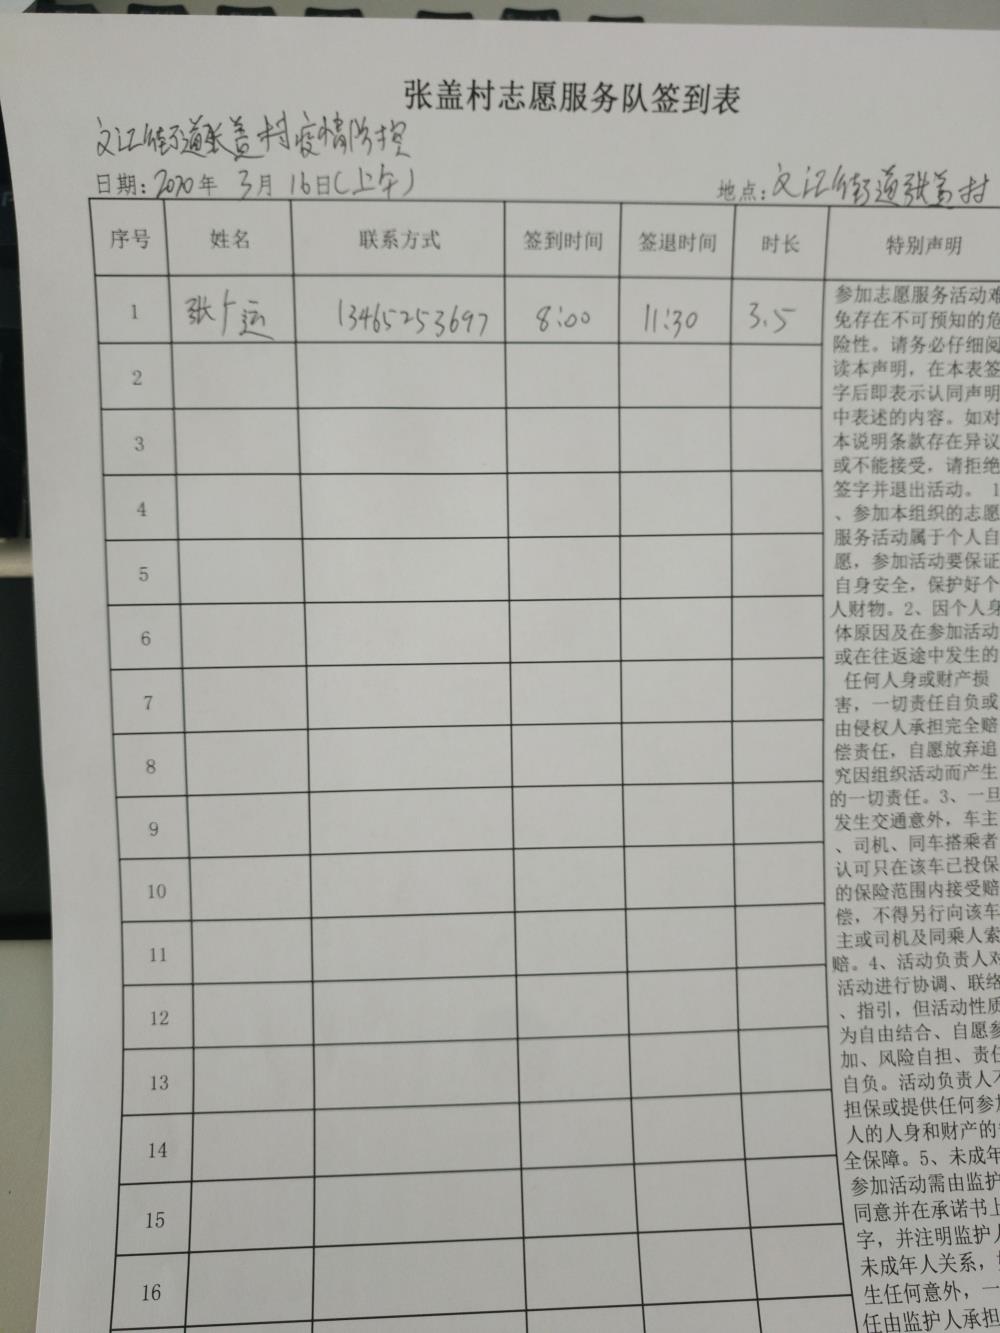 张盖村志愿服务队签到表
文江街道张盖村疫情防控
日期:2020年 3月 16日(上午)
地点:文江街道张盖村
序号 姓名 联系方式 签到时间 签退时间 时长 特别声明
1 张广运 13465253697 8:00 11:30 3.5
2
3
4
5
6
7
8
9
10
11
12
13
14
15
16
参加志愿服务活动难
免存在不可预知的危
险性。请务必仔细阅
读本声明，在本表签
字后即表示认同声明
中表述的内容。如对
本说明条款存在异议
或不能接受，请拒绝
签字并退出活动。 1
、参加本组织的志愿
服务活动属于个人自
愿，参加活动要保证
自身安全，保护好个
人财物。2、因个人身
体原因及在参加活动
或在往返途中发生的
任何人身或财产损
害，一切责任自负或
由侵权人承担完全赔
偿责任，自愿放弃追
究因组织活动而产生
的一切责任。3、一旦
发生交通意外，车主
、司机、同车搭乘者
认可只在该车已投保
的保险范围内接受赔
偿，不得另行向该车
主或司机及同乘人索
赔。4、活动负责人对
活动进行协调、联络
、指引，但活动性质
为自由结合、自愿参
加、风险自担、责任
自负。活动负责人不
担保或提供任何参加
人的人身和财产的
全保障。5、未成年
参加活动需由监护
同意并在承诺书上
字，并注明监护人
未成年人关系，
生任何意外，一
任由监护人承担